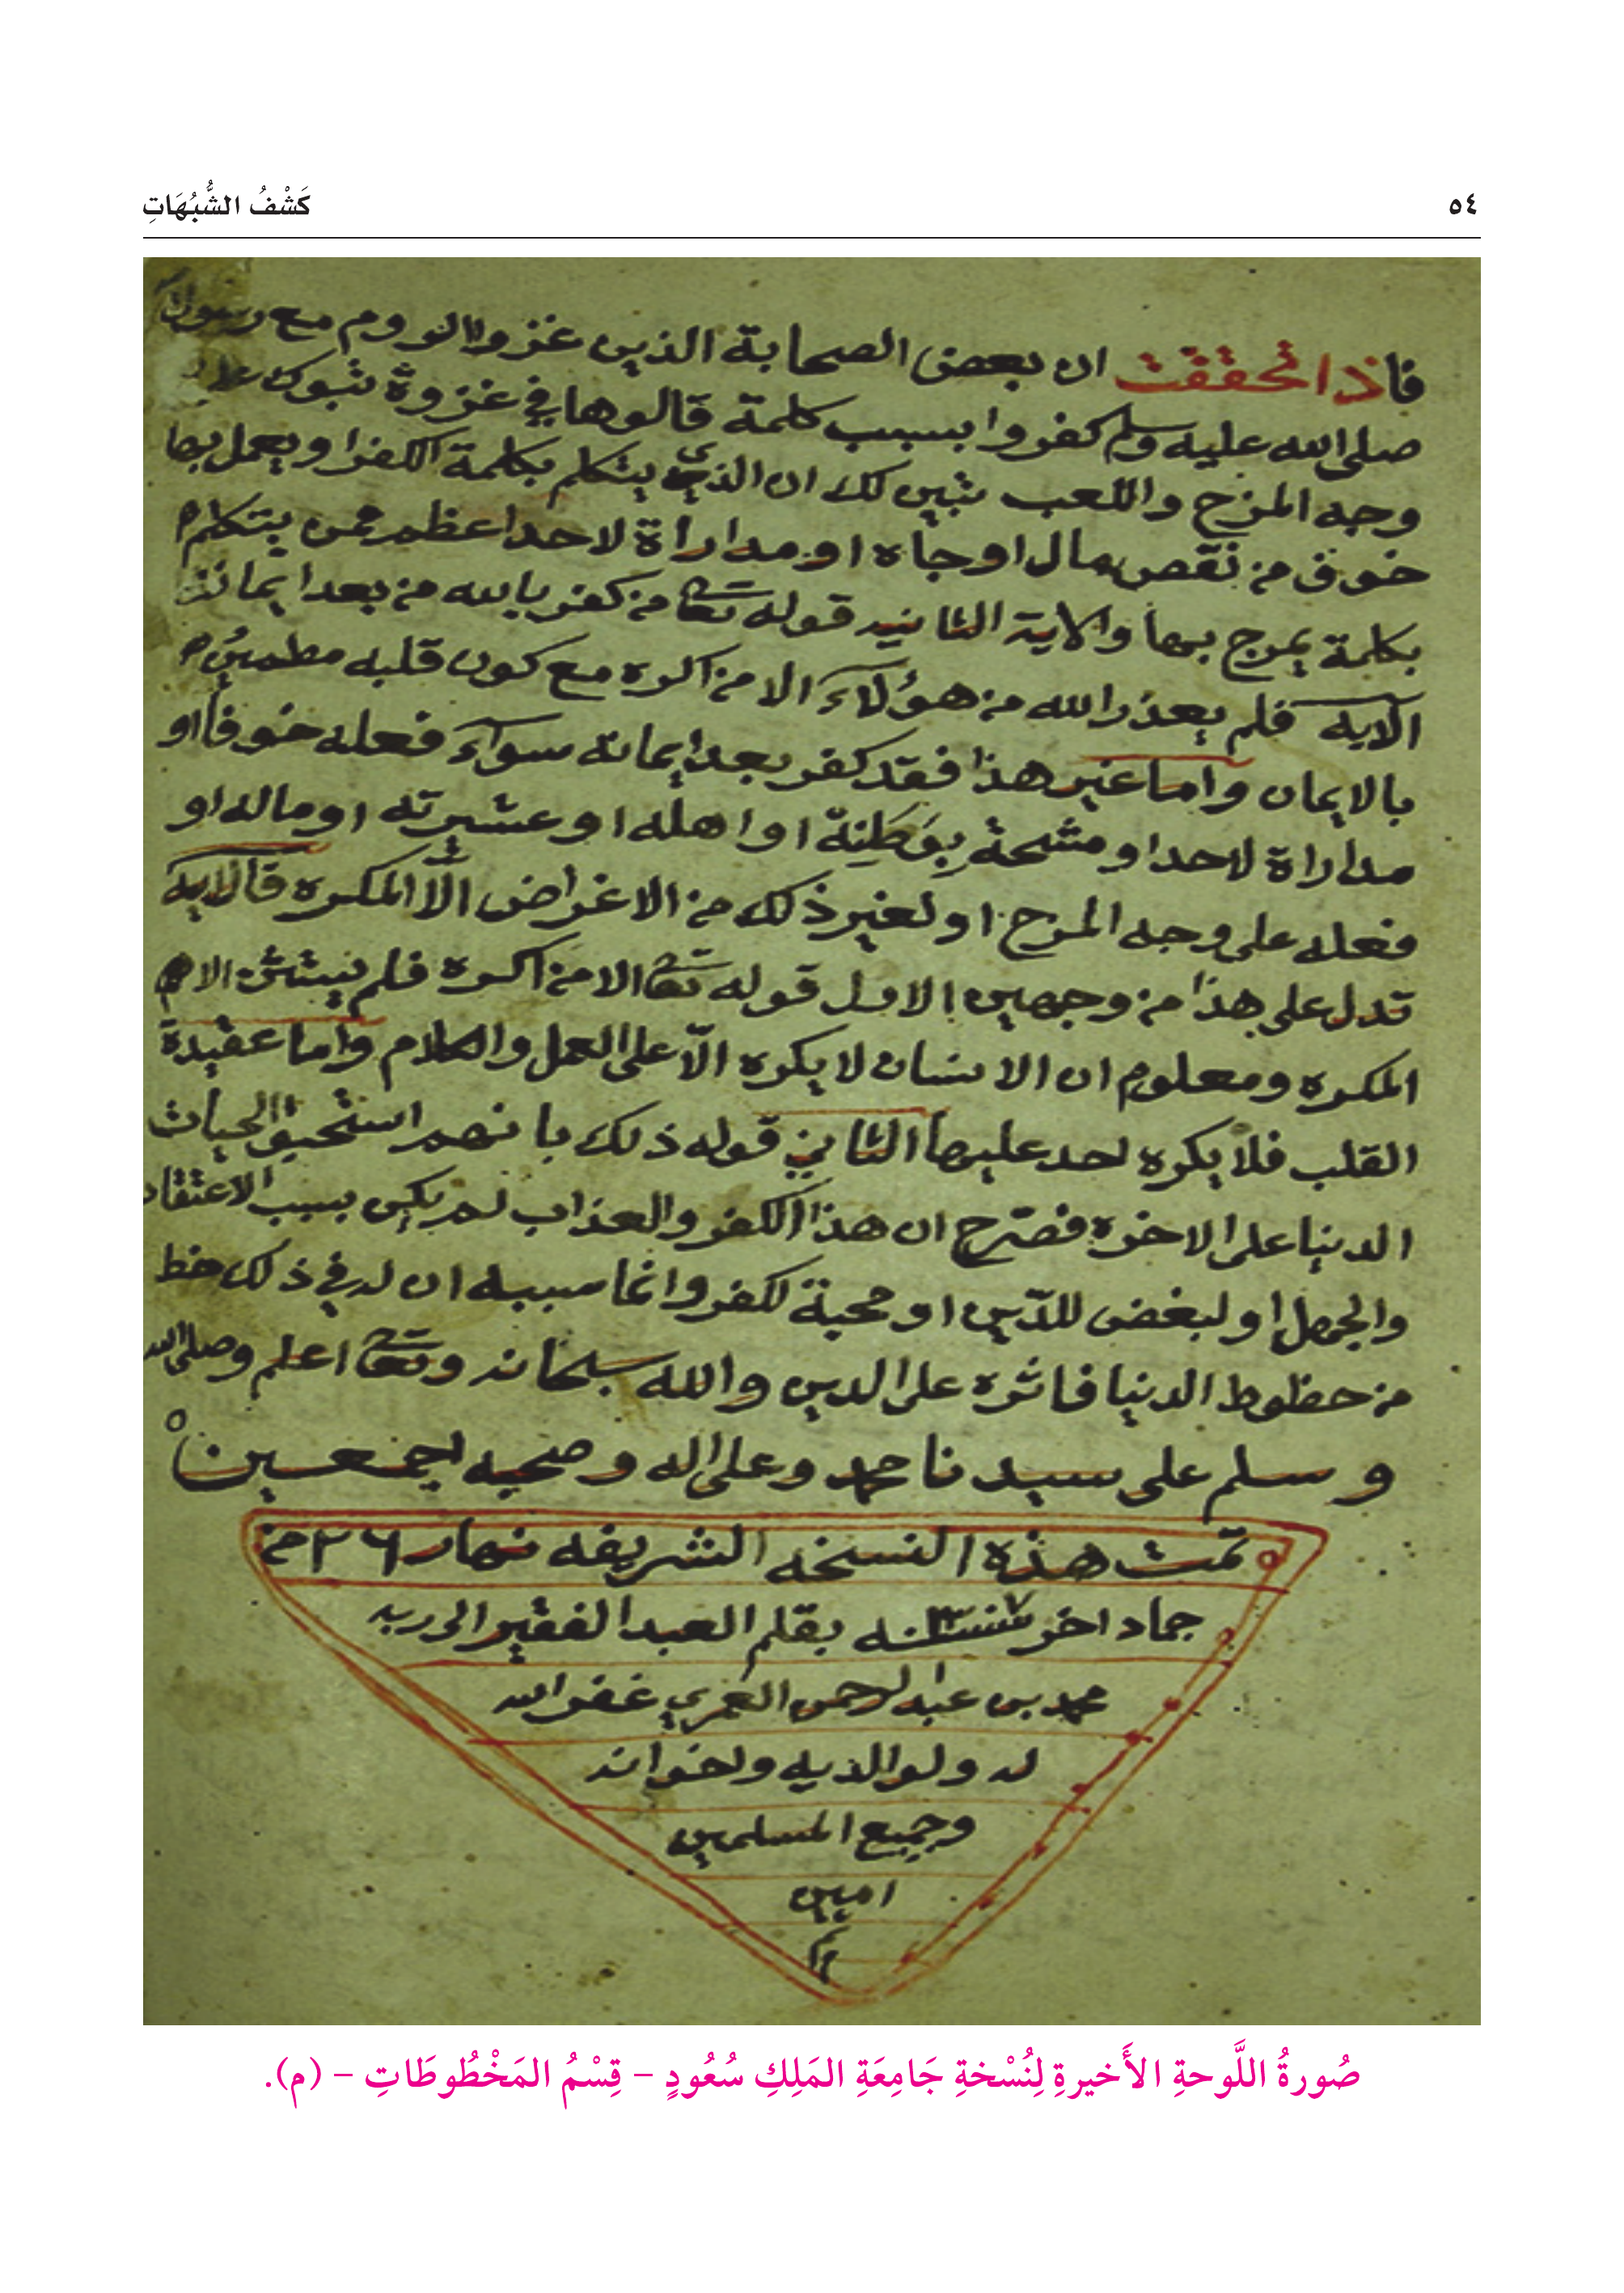 ٥٤
كَشْفُ الشُّبُهَاتِ
فاذا تحققت ان بعض الصحابة الذين غزوا الروم مع رسول
صلى الله عليه وسلم كفروا بسبب كلمة قالوها في غزوة تبوك على
وجه المزح واللعب تبين لك ان الذي يتكلم بكلمة الكفر او يعمل بها
خوف من نقص مال او جاه او مداراة لاحد اعظم ممن يتكلم
بكلمة يمزح بها والاية الثانيه قوله تعا من كفر بالله من بعد ايمانه
الآيه فلم يعذر الله من هؤلاء الا من اكره مع كون قلبه مطمئن
بالايمان واما غير هذا فقد كفر بعد ايمانه سوآء فعله خوفا او
مداراة لاحد او مشحة بوطنه او اهله او عشيرته او ماله او
فعله على وجه المزح او لغير ذلك من الاغراض الا المكره فالايه
تدل على هذا من وجهين الاول قوله تعا الا من اكره فلم يستثن الا
المكره ومعلوم ان الانسان لا يكره الا على العمل والكلام واما عقيدة
القلب فلا يكره احد عليها الثاني قوله ذلك بانهم استحبوا الحيات
الدنيا على الاخره فصرح ان هذا الكفر والعذاب لم يكن بسبب الاعتقاد
والجهل او لبغض للدين او محبة لكفر وانما سببه ان له في ذلك حظ
من حظوظ الدنيا فاثره على الدين والله سبحانه وتعا اعلم وصلى الله
وسلم على سيدنا محمد وعلى اله وصحبه اجمعين
تمت هذه النسخه الشريفه نهار ٢٦ من
جماد اخر سنه بقلم العبد الفقير الى ربه
محمد بن عبد الرحمن العمري غفر الله
له ولوالديه ولاخوانه
وجميع المسلمين
امين
م
صُورةُ اللَّوحةِ الأَخيرةِ لِنُسْخةِ جَامِعَةِ المَلِكِ سُعُودٍ – قِسْمُ المَخْطُوطَاتِ – (م).